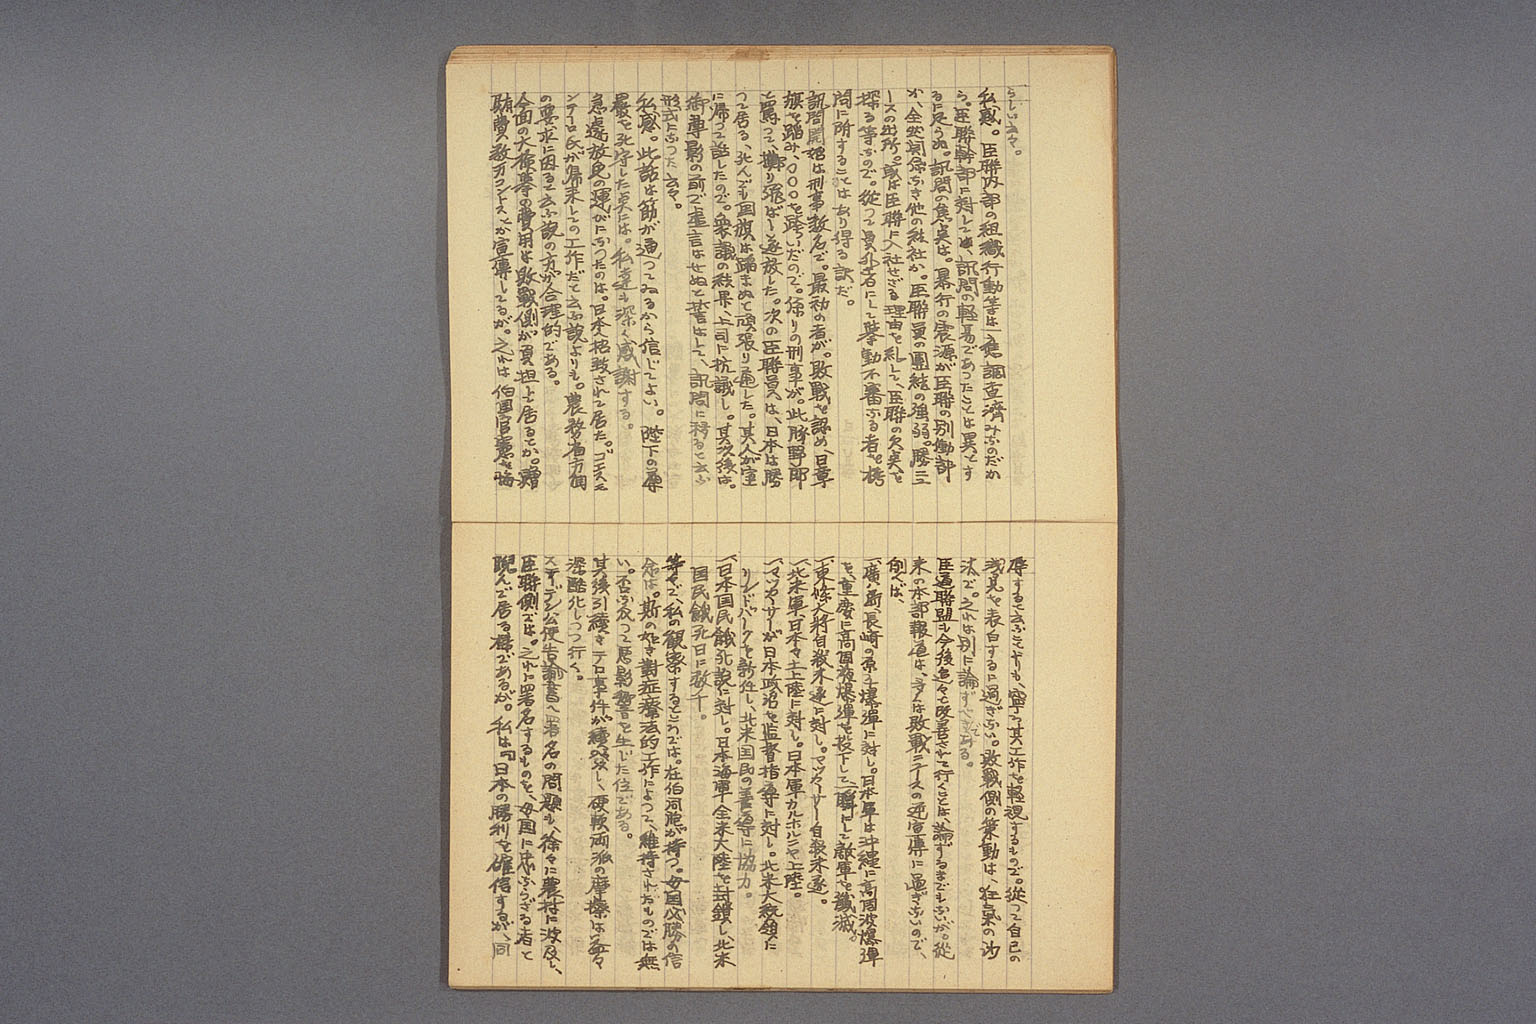 らしい云々。
私感。臣聯内部の組織行動等は一應調査済みなのだか
ら。臣聯幹部に対しては、訊問の軽易であつたことは異とす
るに足らぬ。訊問の焦点は。暴行の震源が臣聯の別働部
か、全然関係なき他の結社か。臣聯員の團結の強弱。勝ニュ
ースの出所。或は臣聯に入社せざる理由を糺して、臣聯の欠点を
探る等なので。従つて員外者にして挙動不審なる者を拷
問に附することはあり得る訳だ。
訊問開始は刑事数名で。最初の者が。敗戦を認め日章
旗を踏み、〇〇〇を跨いだので。係りの刑事が。此豚野郎
と罵つて、擲り飛ばし逐放した。次の臣聯員は、日本は勝
つて居る、死んでも国旗は踏まぬと頑張り通した。其人が室
に帰つて話したので。衆議の結果、上司に抗議し。其次後は。
御尊影の前で虚言はせぬと誓はして、訊問に移ると云ふ
形式になつた云々。
私感。此話は筋が通つてゐるから信じてよい。陛下の尊
嚴を死守した点には。私達も深く感謝する。
急遽放免の運びになつたのは。日本人招致されて居た。ゴエスモ
ンテーロ氏が帰来しての工作だと云ふ説よりも。農務省方面
の要求に因ると云ふ説の方が合理的である。
今回の大検挙の費用は敗戦側が負担し居るとか。贈
賄費数万コントスとか宣傳してるが。之れは伯国官憲を侮
辱すると云ふことよりも、寧ろ其工作を軽視するもので。従つて自己の
浅見を表白するに過ぎない。敗戦側の策動は、狂氣の沙
汰で。之れは別に論ずべきである。
臣道聯盟も今後色々と改善されて行くことは、論ずるまでもないが。従
来の本部報道は、多くは敗戦ニュースの逆宣傳に過ぎないので、
例へば、
一、廣島、長崎の原子爆弾に対し。日本軍は沖縄に高周波爆弾
を、重慶に高周波爆弾を投下して一瞬にして敵軍を殲滅。
一、東條大將自殺未遂に対し。マツカーサー自殺未遂。
一、北米軍、日本々土上陸に対し。日本軍カルホルニヤ上陸。
一、マツカーサーが日本政治を監督指導に対し。北米大統領に
リンドバークを新任し、北米国民の善導に協力。
一、日本国民餓死説に対し。日本海軍全米大陸を封鎖し、北米
国民餓死日に数千。
等々で、私の観察するところでは。在伯同胞が持つ。母国必勝の信
念は。斯の如き對症療法的工作によつて、維持されたものでは無
い。否な反つて悪影響を生じた位である。
其後引続きテロ事件が續發し、硬軟両派の摩擦は益々
深酷化しつつ行く。
スエーデン公使告諭書へ署名の問題も、徐々に農村に波及し、
臣聯側では。之れに署名するものを、母国に忠ならざる者と
睨んで居る様であるが。私は『日本の勝利を確信するが、同